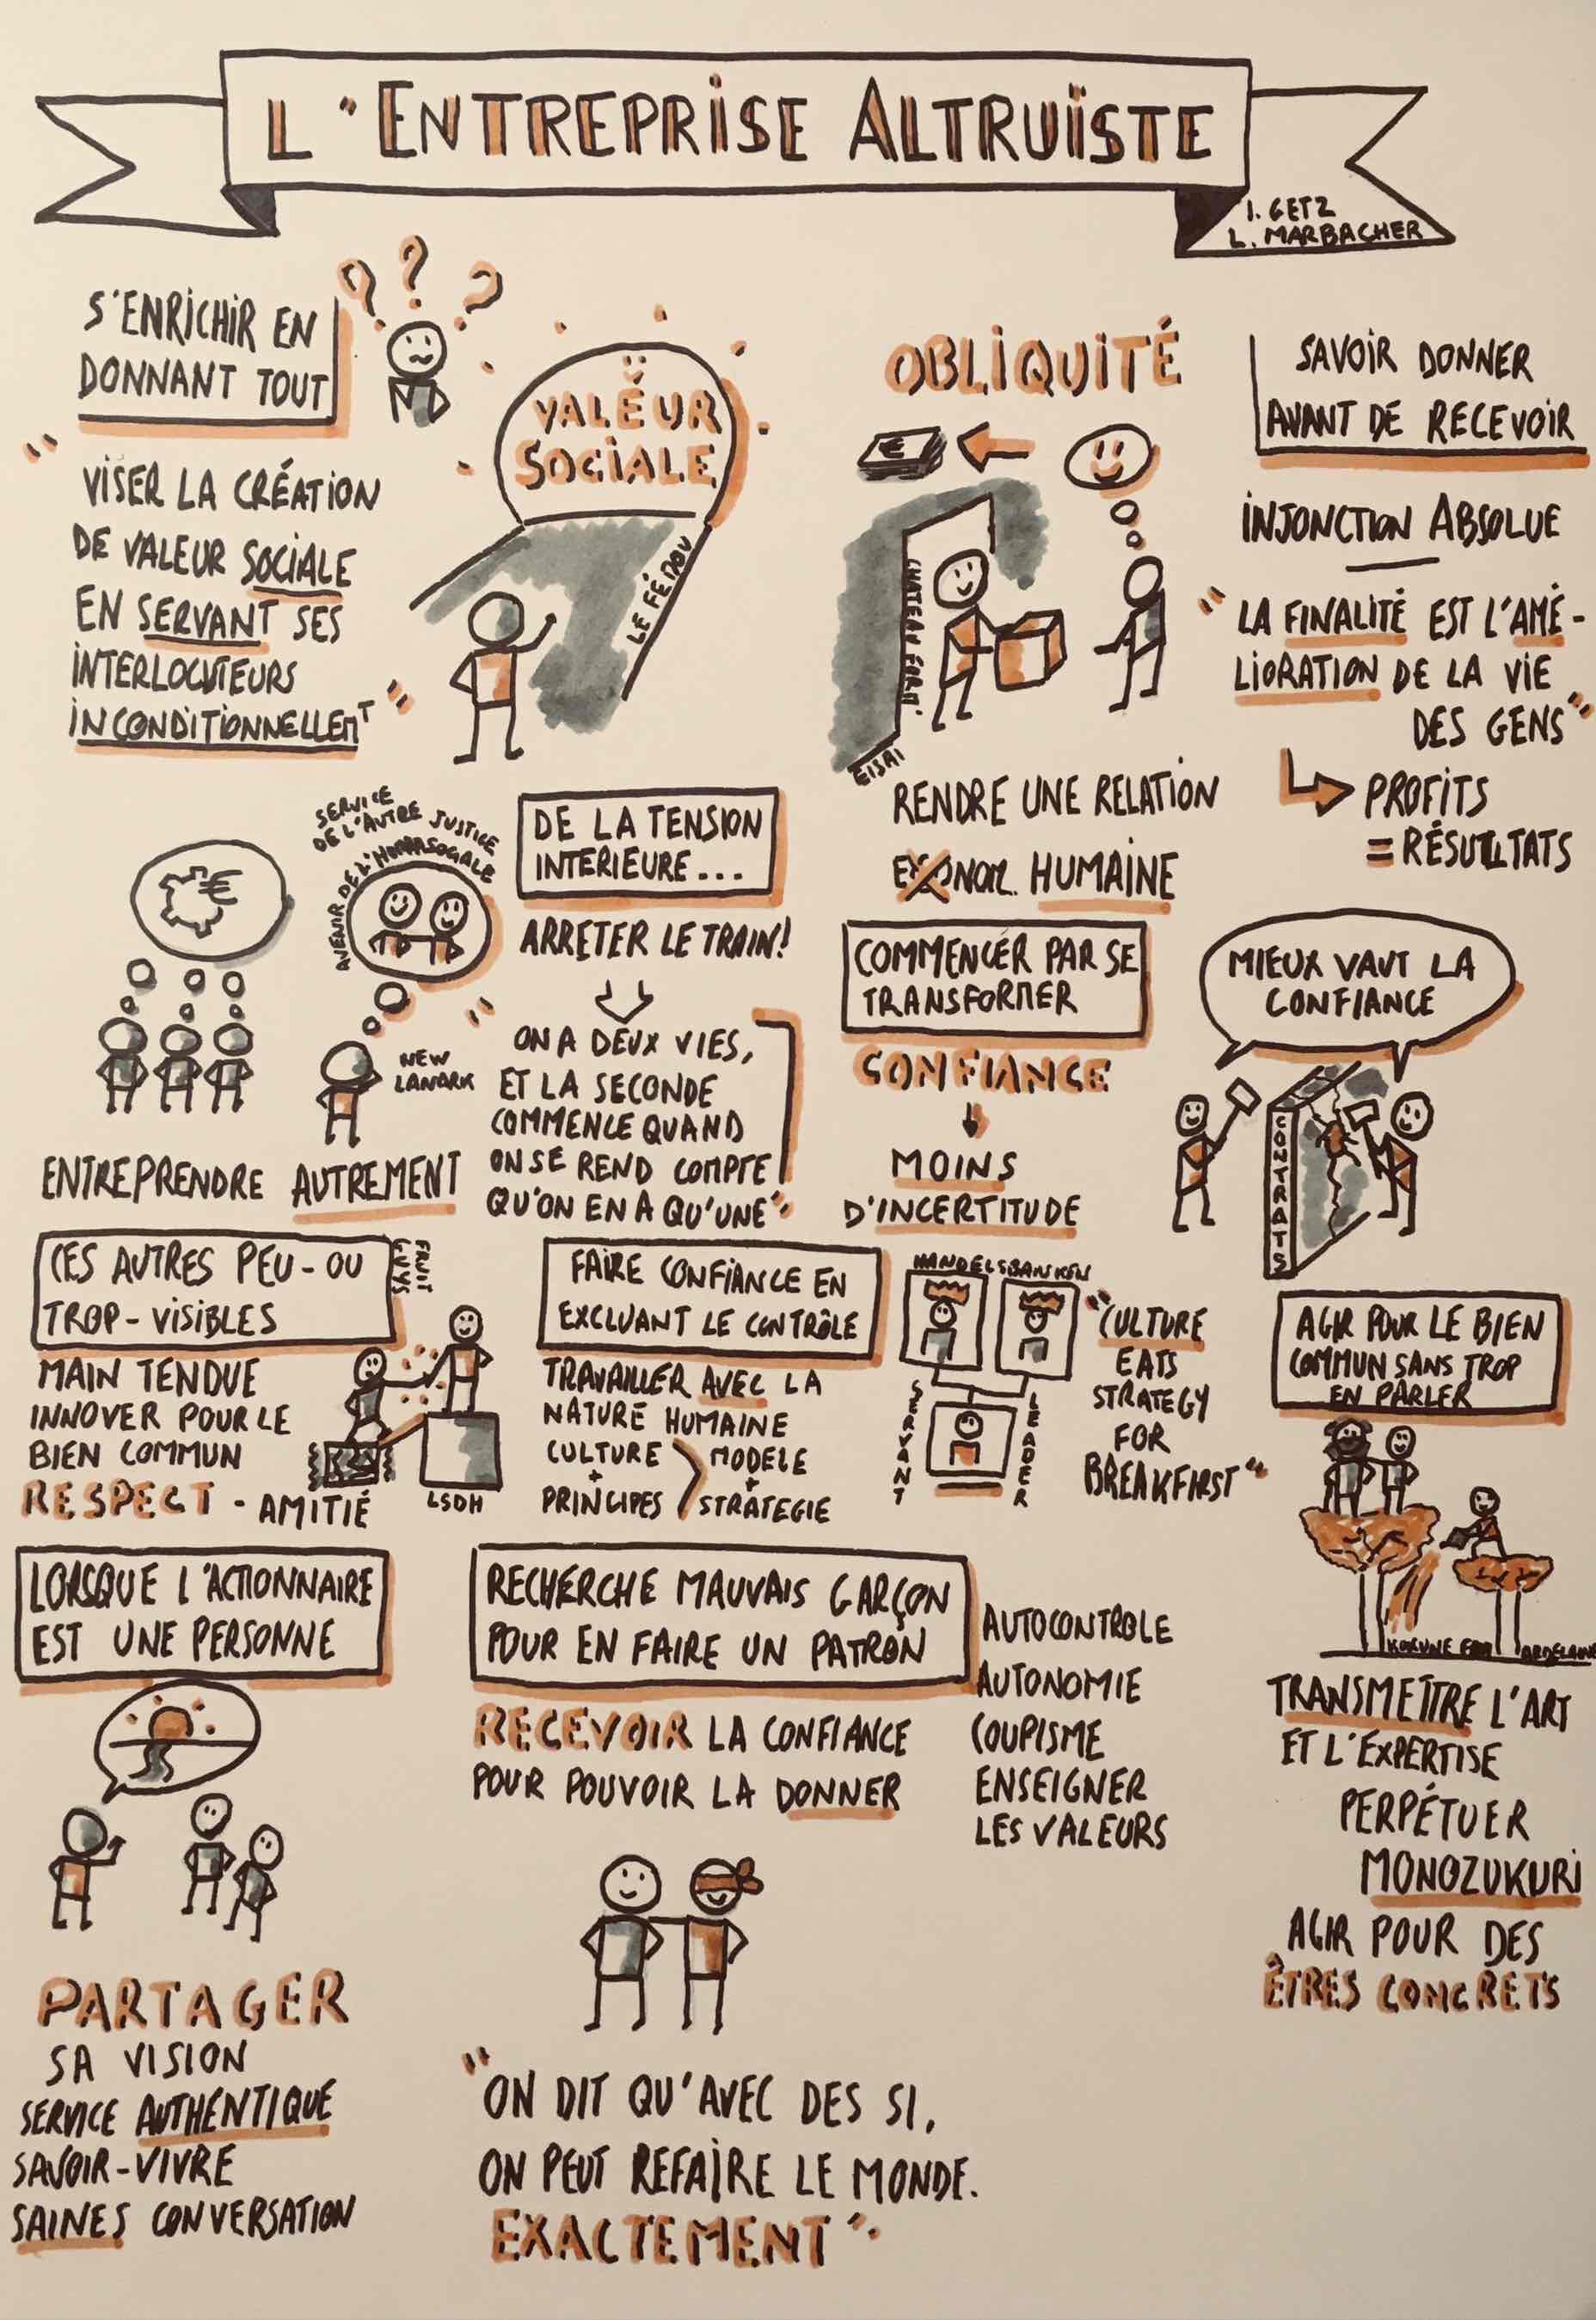 L'ENTREPRISE ALTRUISTE
I. GETZ
L. MARBACHER
S'ENRICHIR EN
DONNANT TOUT
???
"VISER LA CRÉATION
DE VALEUR SOCIALE
EN SERVANT SES
INTERLOCUTEURS
INCONDITIONNELLEMT"
VALEUR
SOCIALE
LE FÉDOU
OBLIQUITÉ
€
CHATEAU FORM'
EISAI
RENDRE UNE RELATION
ECONOM. HUMAINE
SAVOIR DONNER
AVANT DE RECEVOIR
INJONCTION ABSOLUE
"LA FINALITÉ EST L'AMÉ-
LIORATION DE LA VIE
DES GENS"
PROFITS
= RÉSULTATS
€
SERVICE
DE L'AUTRE JUSTICE
SOCIALE
AVENIR DE L'HUMA
NEW
LANARK
ENTREPRENDRE AUTREMENT
DE LA TENSION
INTERIEURE...
ARRETER LE TRAIN!
"ON A DEUX VIES,
ET LA SECONDE
COMMENCE QUAND
ON SE REND COMPTE
QU'ON EN A QU'UNE"
COMMENCER PAR SE
TRANSFORMER
CONFIANCE
MOINS
D'INCERTITUDE
MIEUX VAUT LA
CONFIANCE
CONTRATS
CES AUTRES PEU-OU
TROP-VISIBLES
FRUIT
GUYS
MAIN TENDUE
INNOVER POUR LE
BIEN COMMUN
RESPECT - AMITIÉ
LSDH
FAIRE CONFIANCE EN
EXCLUANT LE CONTRÔLE
TRAVAILLER AVEC LA
NATURE HUMAINE
CULTURE
+
PRINCIPES
> MODELE
+
STRATEGIE
HANDELSBANKEN
SERVANT
LEADER
"CULTURE
EATS
STRATEGY
FOR
BREAKFIRST"
AGIR POUR LE BIEN
COMMUN SANS TROP
EN PARLER
TRANSMETTRE L'ART
ET L'EXPERTISE
PERPÉTUER
MONOZUKURI
AGIR POUR DES
ÊTRES CONCRETS
LORSQUE L'ACTIONNAIRE
EST UNE PERSONNE
PARTAGER
SA VISION
SERVICE AUTHENTIQUE
SAVOIR-VIVRE
SAINES CONVERSATION
RECHERCHE MAUVAIS GARÇON
POUR EN FAIRE UN PATRON
RECEVOIR LA CONFIANCE
POUR POUVOIR LA DONNER
AUTOCONTROLE
AUTONOMIE
COUPISME
ENSEIGNER
LES VALEURS
"ON DIT QU'AVEC DES SI,
ON PEUT REFAIRE LE MONDE.
EXACTEMENT"